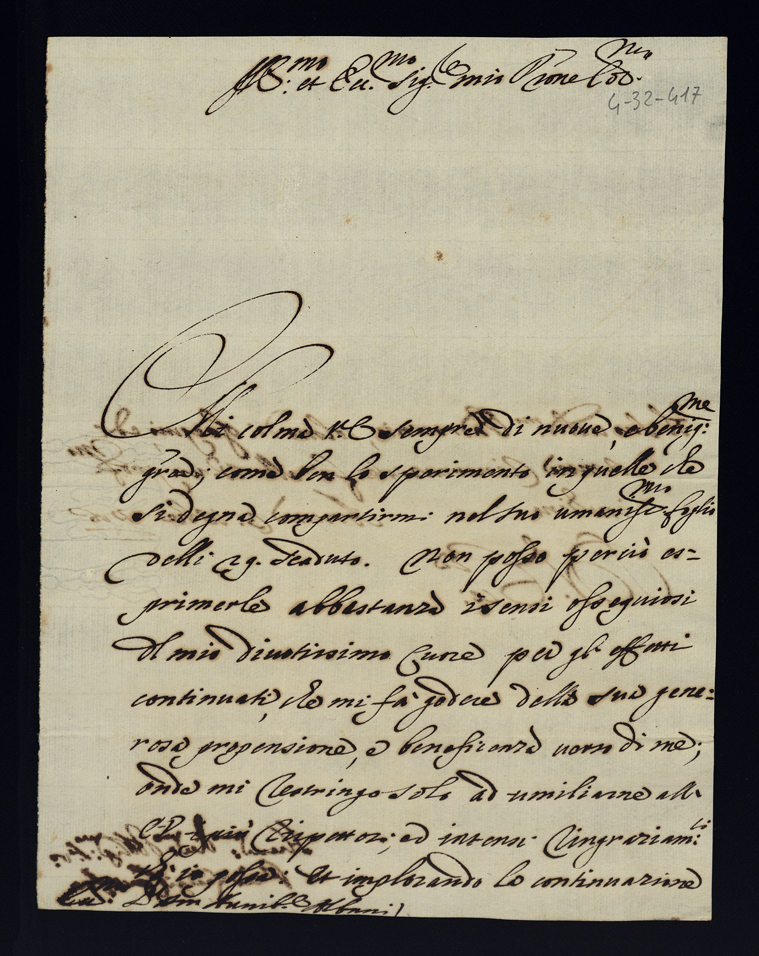 Ill.mo et Ecc.mo Sig.re mio P̃rone Col.mo
4-32-417
Mi colma V.E. sempre di nuove, e benig.me
grazie, come ben lo sperimento in quelle che
si degna compartirmi nel suo umaniss.mo foglio
delli 29. scaduto. Non posso perciò es=
primerle abbastanza i sensi ossequiosi
del mio divotissimo Cuore per gli effetti
continuati, che mi fà godere della sua gene=
rosa propensione, e beneficenza verso di me;
onde mi restringo solo ad umiliarne all'
E.V. i più rispettosi, ed intensi ringraziam.ti
ch'io possa: Et implorando la continuazione
D. Annib.e Albani